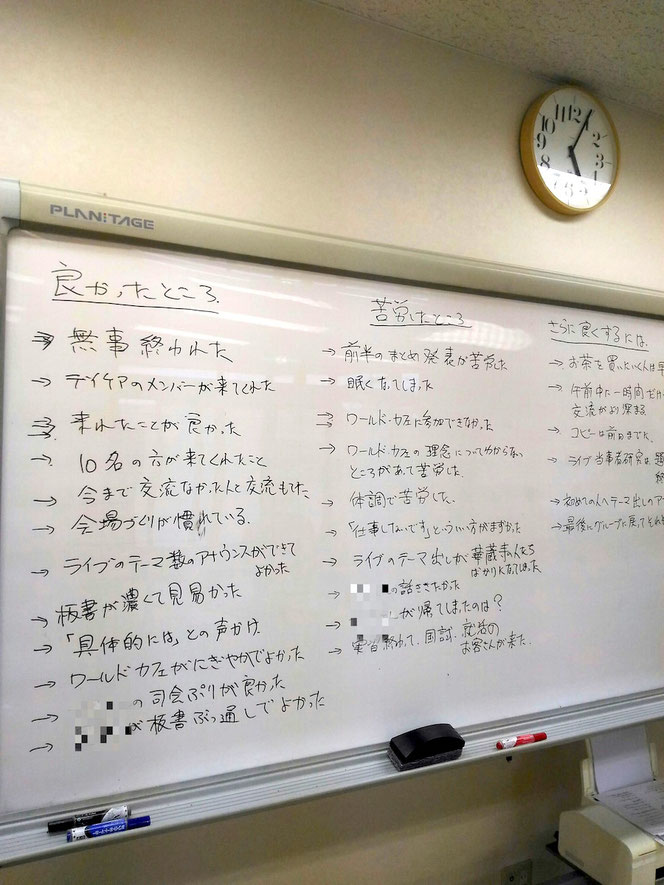 PLANiTAGE
良かったところ
→ 無事終われた
→ デイケアのメンバーが来てくれた
→ 来れたことが良かった
→ 10名の方が来てくれたこと
→ 今まで交流なかった人と交流もてた
→ 会場づくりが慣れている.
→ ライブのテーマ数のアナウンスができて
よかった
→ 板書が濃くて見易かった
→ 「具体的には」との声かけ
→ ワールドカフェがにぎやかでよかった
→ の司会ぶりが良かった
→ が板書ぶっ通しでよかった
苦労したところ
→ 前半のまとめ発表が苦労した
→ 眠くなってしまった
→ ワールド・カフェに参加できなかった
→ ワールド・カフェの理念についてわからない
ところがあって苦労した.
→ 体調で苦労した.
→ 「仕事してないです」といういい方がまずかった
→ ライブのテーマ出しが華蔵寺の人たち
ばかりになってしまった
→ の話ききたかった
→ が帰ってしまったのは?
→ 実習終わって、国試、就活の
お客さんが来た.
さらに良くするには
→ お茶を買いたい人は早
→ 午前中に一時間だけ
交流がより深まる.
→ コピーは前日までに.
→ ライブ当事者研究は
→ 初めての人へテーマ出しのア
→ 最後にグループに戻って
12
1
2
3
4
5
7
8
9
10
11